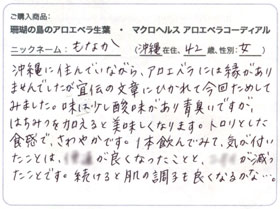 ご購入商品:
珊瑚の島のアロエベラ生葉 ・ マクロヘルス アロエベラコーディアル
ニックネーム: もなか (沖縄在住、42歳、性別: 女)
沖縄に住んでいながら、アロエベラには縁があり
ませんでしたが宣伝の文章にひかれて今回ためして
みました。味は少し酸味があり青臭いですが、
はちみつを加えると美味しくなります。トロリとした
食感で、さわやかです。1本飲んでみて、気が付い
たことは、 が良くなったことと、 が減っ
たことです。続けると肌の調子も良くなるかな…。